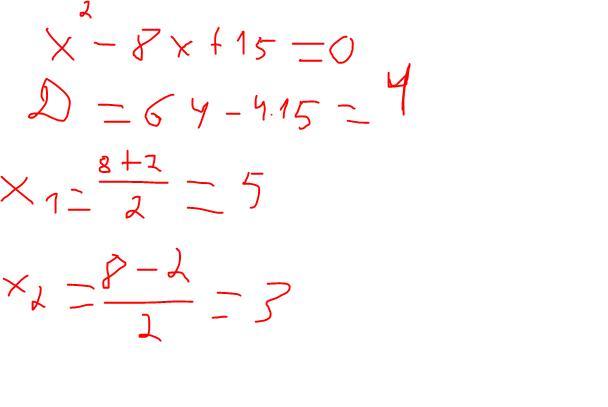 x² - 8x + 15 = 0
D = 64 - 4·15 = 4
x₁ = (8+2)/2 = 5
x₂ = (8-2)/2 = 3